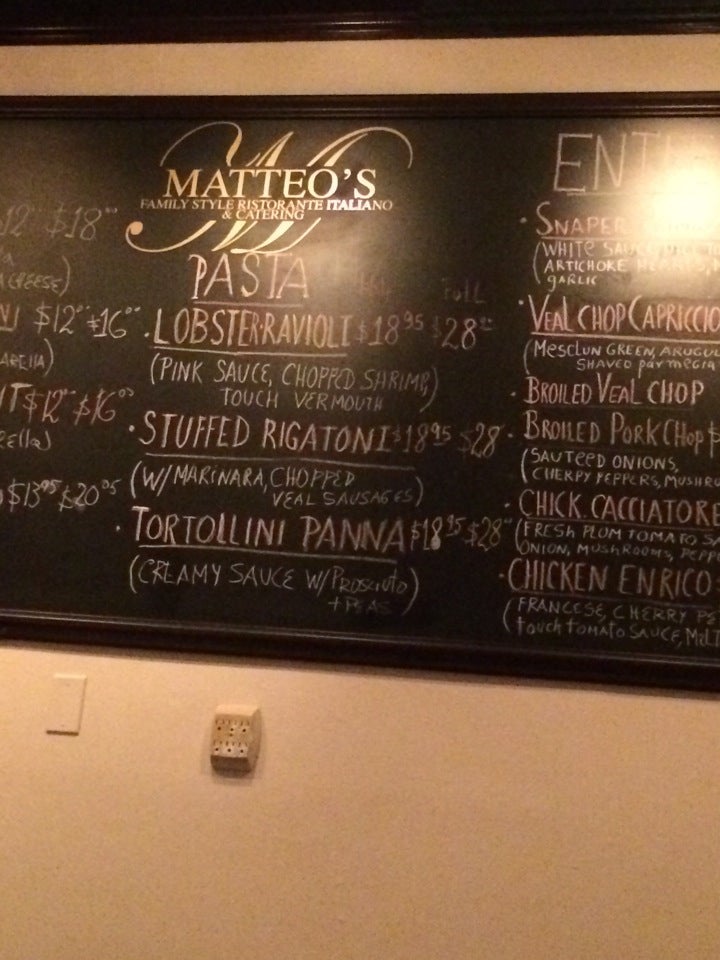 MATTEO'S
FAMILY STYLE RISTORANTE ITALIANO
& CATERING
$18
CHEESE)
$12 $16
$12 $16
$13⁹⁵ $20⁹⁵
PASTA
FULL
• LOBSTER RAVIOLI $18⁹⁵ $28
(PINK SAUCE, CHOPPED SHRIMP,
TOUCH VERMOUTH)
• STUFFED RIGATONI $18⁹⁵ $28
(W/ MARINARA, CHOPPED
VEAL SAUSAGES)
• TORTOLLINI PANNA $18.⁹⁵ $28
(CREAMY SAUCE W/ PROSCIUTO
+ PEAS)
ENT
• SNAPER
(WHITE SAUCE
ARTICHOKE
GARLIC
• VEAL CHOP CAPRICCIO
(MESCLUN GREEN, ARUGU
SHAVED PARMEGIA
• BROILED VEAL CHOP
• BROILED PORK CHOP $
(SAUTEED ONIONS,
CHERRY PEPPERS, MUSHRO
• CHICK. CACCIATORE
(FRESH PLUM TOMATO SA
ONION, MUSHROOMS, PEPP
• CHICKEN ENRICO
(FRANCESE, CHERRY PE
TOUCH TOMATO SAUCE, MELT